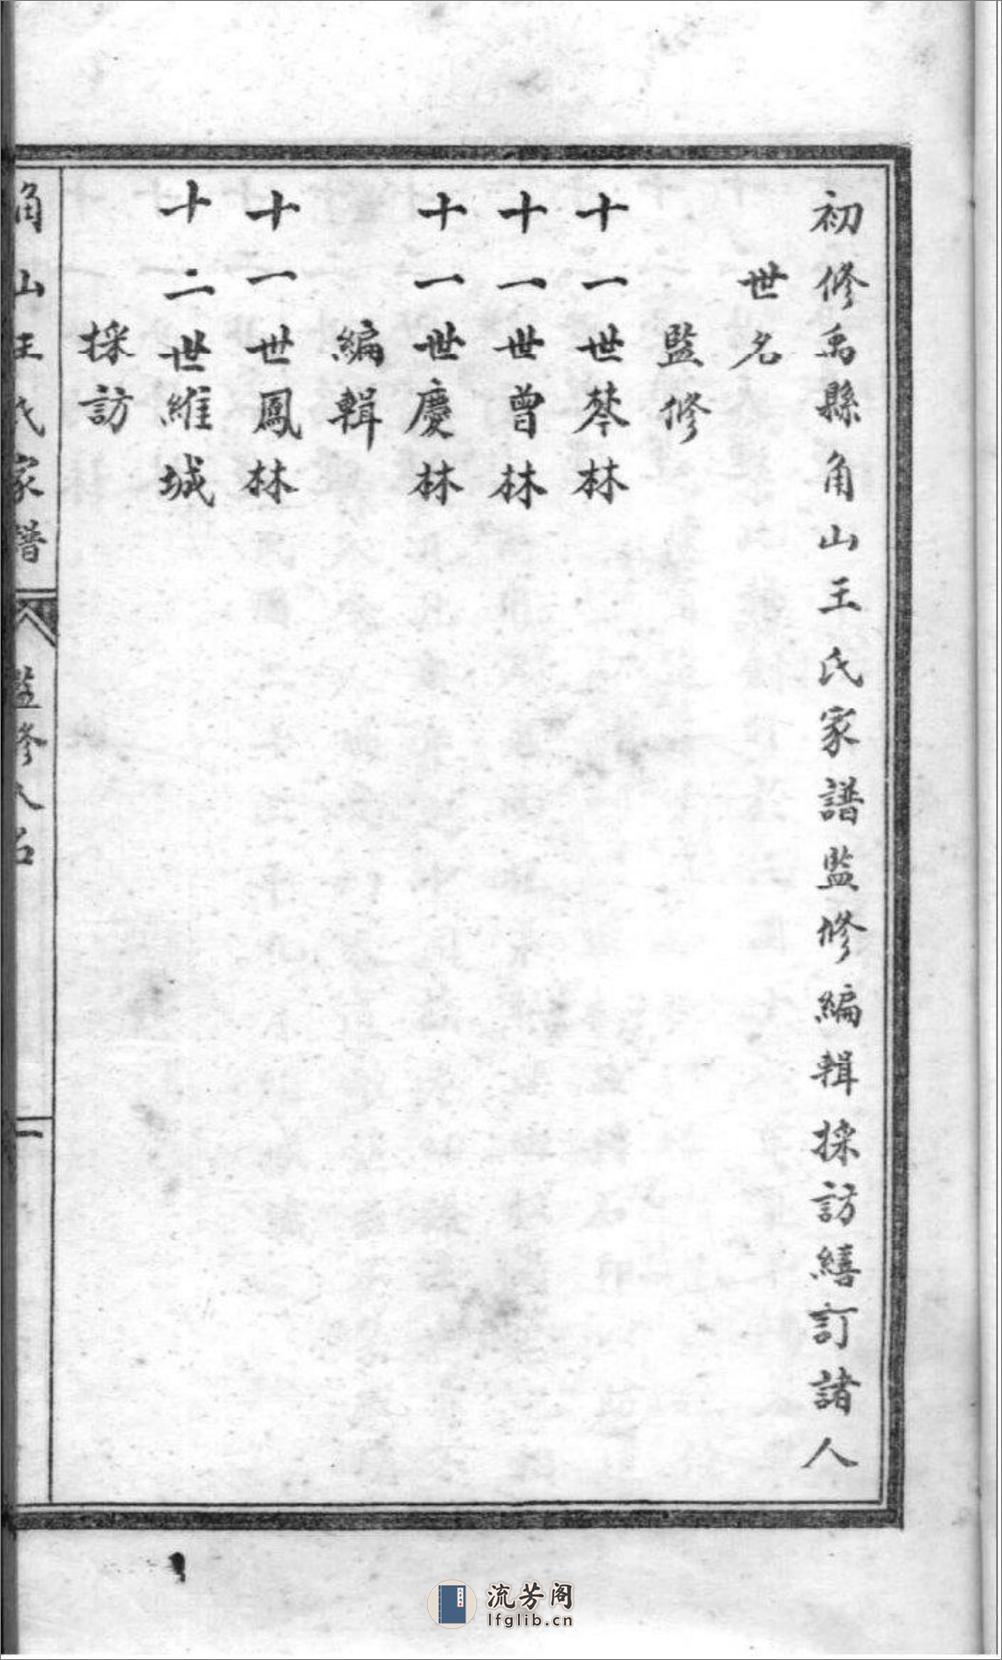 初修禹縣角山王氏家譜監修編輯採訪繕訂諸人
世名
監修
十一世棽林
十一世曾林
十一世慶林
編輯
十一世鳳林
十二世維城
採訪
角山王氏家譜
監修人名
一
流芳阁
lfglib.cn